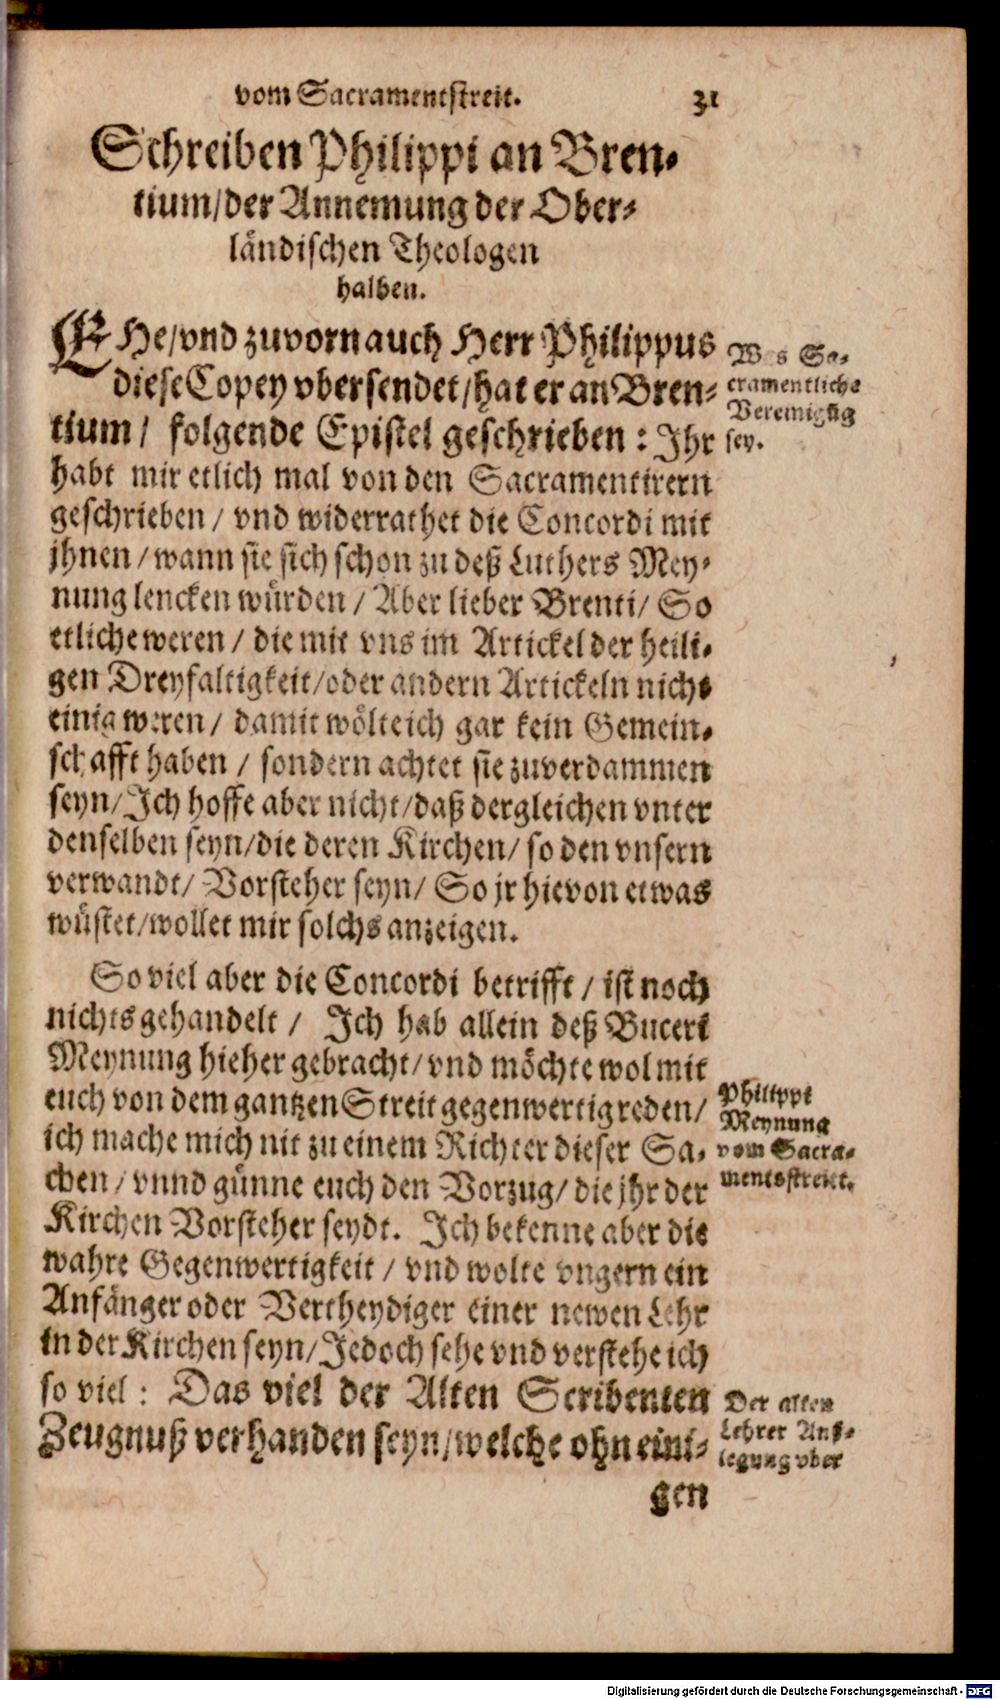 vom Sacramentstreit. 31
Schreiben Philippi an Bren-
tium/der Annemung der Ober-
ländischen Theologen
halben.
EHe/vnd zuvorn auch Herr Philippus
diese Copey vbersendet/hat er an Bren-
tium/ folgende Epistel geschrieben: Ihr
habt mir etlich mal von den Sacramentirern
geschrieben/ vnd widerrathet die Concordi mit
jhnen/wann sie sich schon zu deß Luthers Mey-
nung lencken würden/ Aber lieber Brenti/ So
etliche weren/ die mit vns im Artickel der heili-
gen Dreyfaltigkeit/oder andern Artickeln nicht
einig weren/ damit wölte ich gar kein Gemein-
schafft haben/ sondern achtet sie zuverdammen
seyn/Ich hoffe aber nicht/daß dergleichen vnter
denselben seyn/die deren Kirchen/ so den vnsern
verwandt/ Vorsteher seyn/ So jr hievon etwas
wüstet/wollet mir solchs anzeigen.
So viel aber die Concordi betrifft/ ist noch
nichts gehandelt/ Ich hab allein deß Buceri
Meynung hieher gebracht/vnd möchte wol mit
euch von dem gantzen Streit gegenwertig reden/
ich mache mich nit zu einem Richter dieser Sa-
chen/ vnnd günne euch den Vorzug/ die jhr der
Kirchen Vorsteher seydt. Ich bekenne aber die
wahre Gegenwertigkeit/ vnd wolte vngern ein
Anfänger oder Vertheydiger einer newen Lehr
in der Kirchen seyn/Jedoch sehe vnd verstehe ich
so viel: Das viel der Alten Scribenten
Zeugnuß verhanden seyn/welche ohn eini-
gen
Was Sa-
cramentliche
Vereinigūg
sey.
Philippi
Meynung
vom Sacra-
mentsstreit.
Der alten
Lehrer Auß-
legung vber
Digitalisierung gefördert durch die Deutsche Forschungsgemeinschaft - DFG